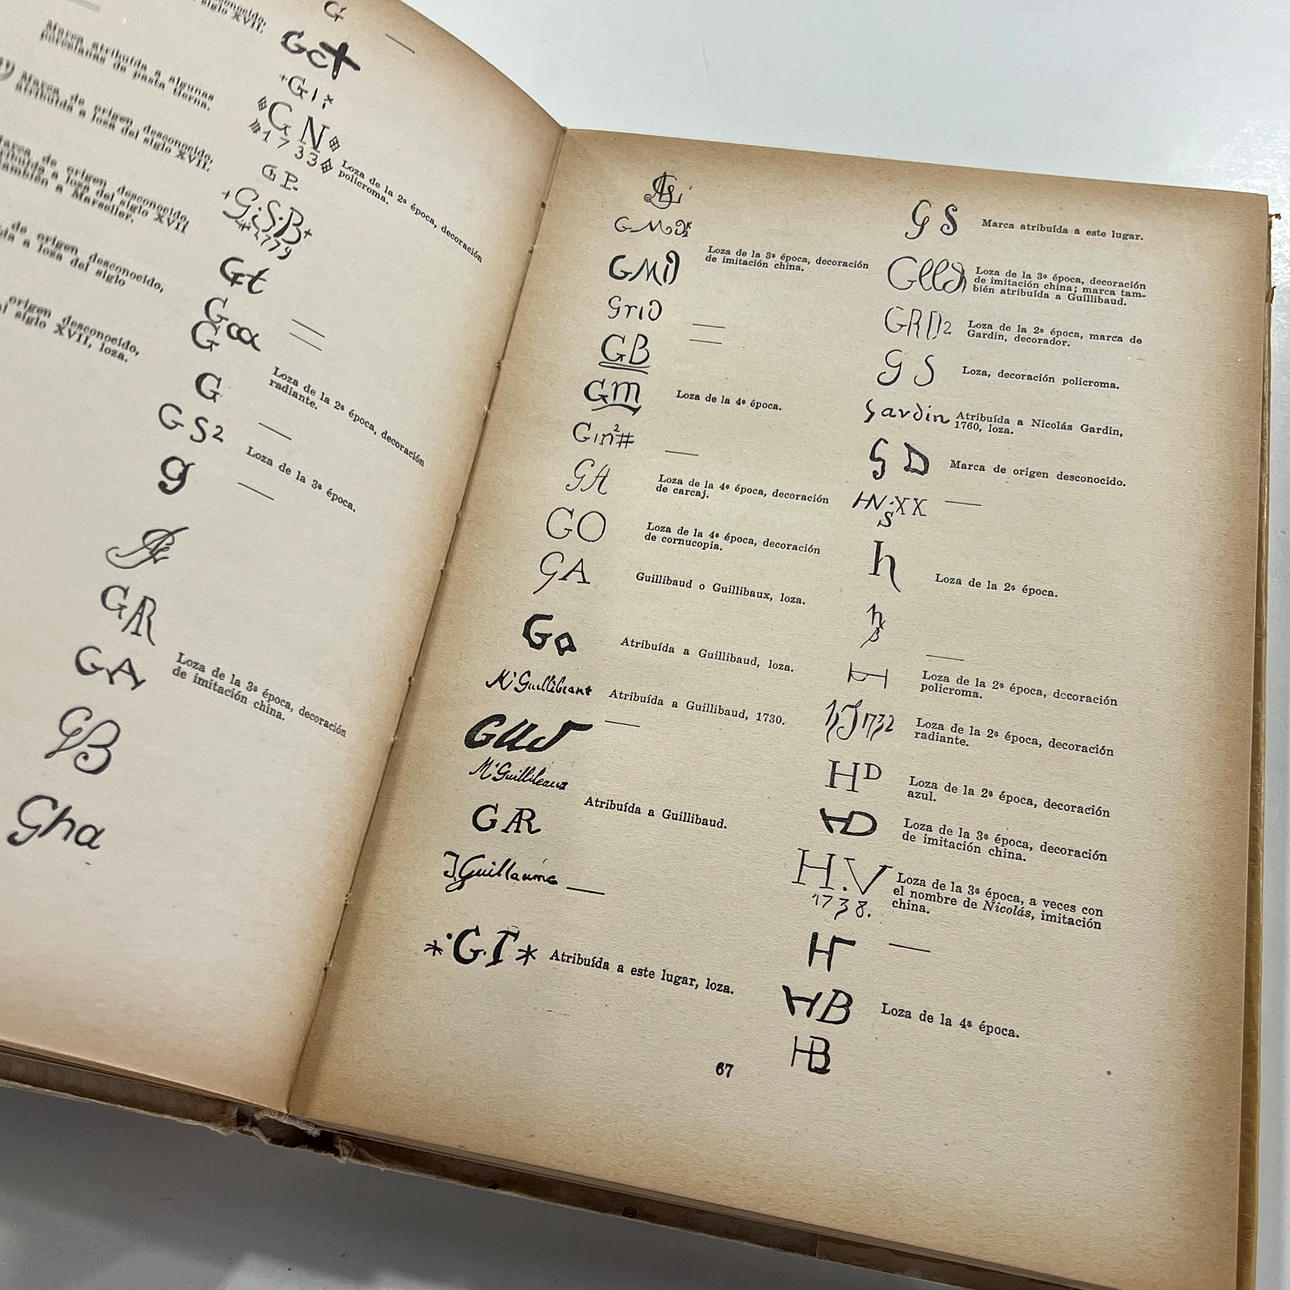 siglo XVII.
Marca atribuída a algunas
porcelanas de pasta tierna.
Marca de origen desconocido,
atribuída a losa del siglo XVII.
de origen desconocido,
a losa del siglo XVII
también a Marseller.
de origen desconocido,
a losa del siglo
origen desconocido,
siglo XVII, loza.
G
Get
+GI
G N
1733
Loza de la 2ª época, decoración
policroma.
G P.
+G.S.B+
1779
Gt
G
G
G
Loza de la 2ª época, decoración
radiante.
GS2
Loza de la 3ª época.
g
GR
GA
Loza de la 3ª época, decoración
de imitación china.
GB
Gha
GMd
Loza de la 3ª época, decoración
de imitación china.
Grid
GB
Gm
Loza de la 4ª época.
Gin²#
GA
Loza de la 4ª época, decoración
de carcaj.
GO
Loza de la 4ª época, decoración
de cornucopia.
GA
Guillibaud o Guillibaux, loza.
Go
Atribuída a Guillibaud, loza.
Atribuída a Guillibaud, 1730.
Atribuída a Guillibaud.
GR
Guillaume
*·G.T*
Atribuída a este lugar, loza.
GS
Marca atribuída a este lugar.
Loza de la 3ª época, decoración
de imitación china; marca tam-
bién atribuída a Guillibaud.
GRD2
Loza de la 2ª época, marca de
Gardin, decorador.
GS
Loza, decoración policroma.
Gardin
Atribuída a Nicolás Gardin,
1760, loza.
GD
Marca de origen desconocido.
HN:XX
S
h
Loza de la 2ª época.
h
B
H
Loza de la 2ª época, decoración
policroma.
1732
Loza de la 2ª época, decoración
radiante.
HD
Loza de la 2ª época, decoración
azul.
HD
Loza de la 3ª época, decoración
de imitación china.
H.V
1738.
Loza de la 3ª época, a veces con
el nombre de Nicolás, imitación
china.
H
HB
Loza de la 4ª época.
HB
67